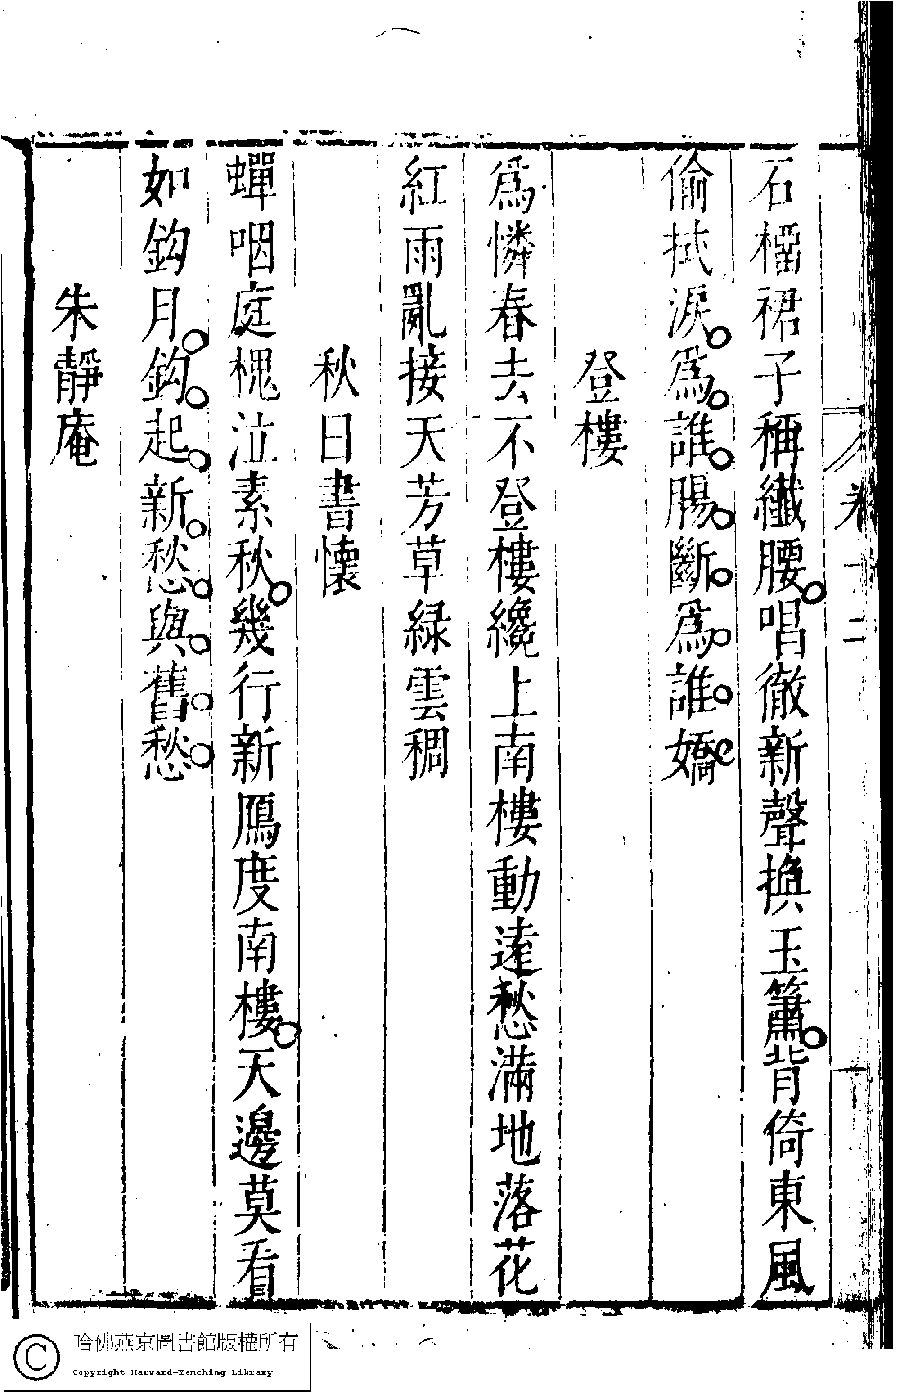 卷十二
石榴裙子稱纖腰唱徹新聲換玉簫背倚東風
偷拭淚爲誰腸斷爲誰嬌
登樓
爲憐春去不登樓纔上南樓動遠愁滿地落花
紅雨亂接天芳草綠雲稠
秋日書懷
蟬咽庭槐泣素秋幾行新鴈度南樓天邊莫看
如鈎月鈎起新愁與舊愁
朱靜庵
哈佛燕京圖書館版權所有
Copyright Harvard-Yenching Library